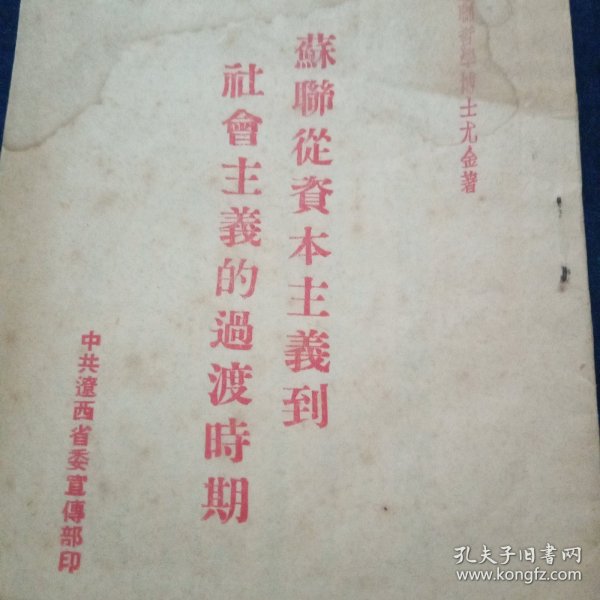 聯哲學博士尤金著
蘇聯從資本主義到
社會主義的過渡時期
中共遼西省委宣傳部印
孔夫子旧书网
www.kongfz.com